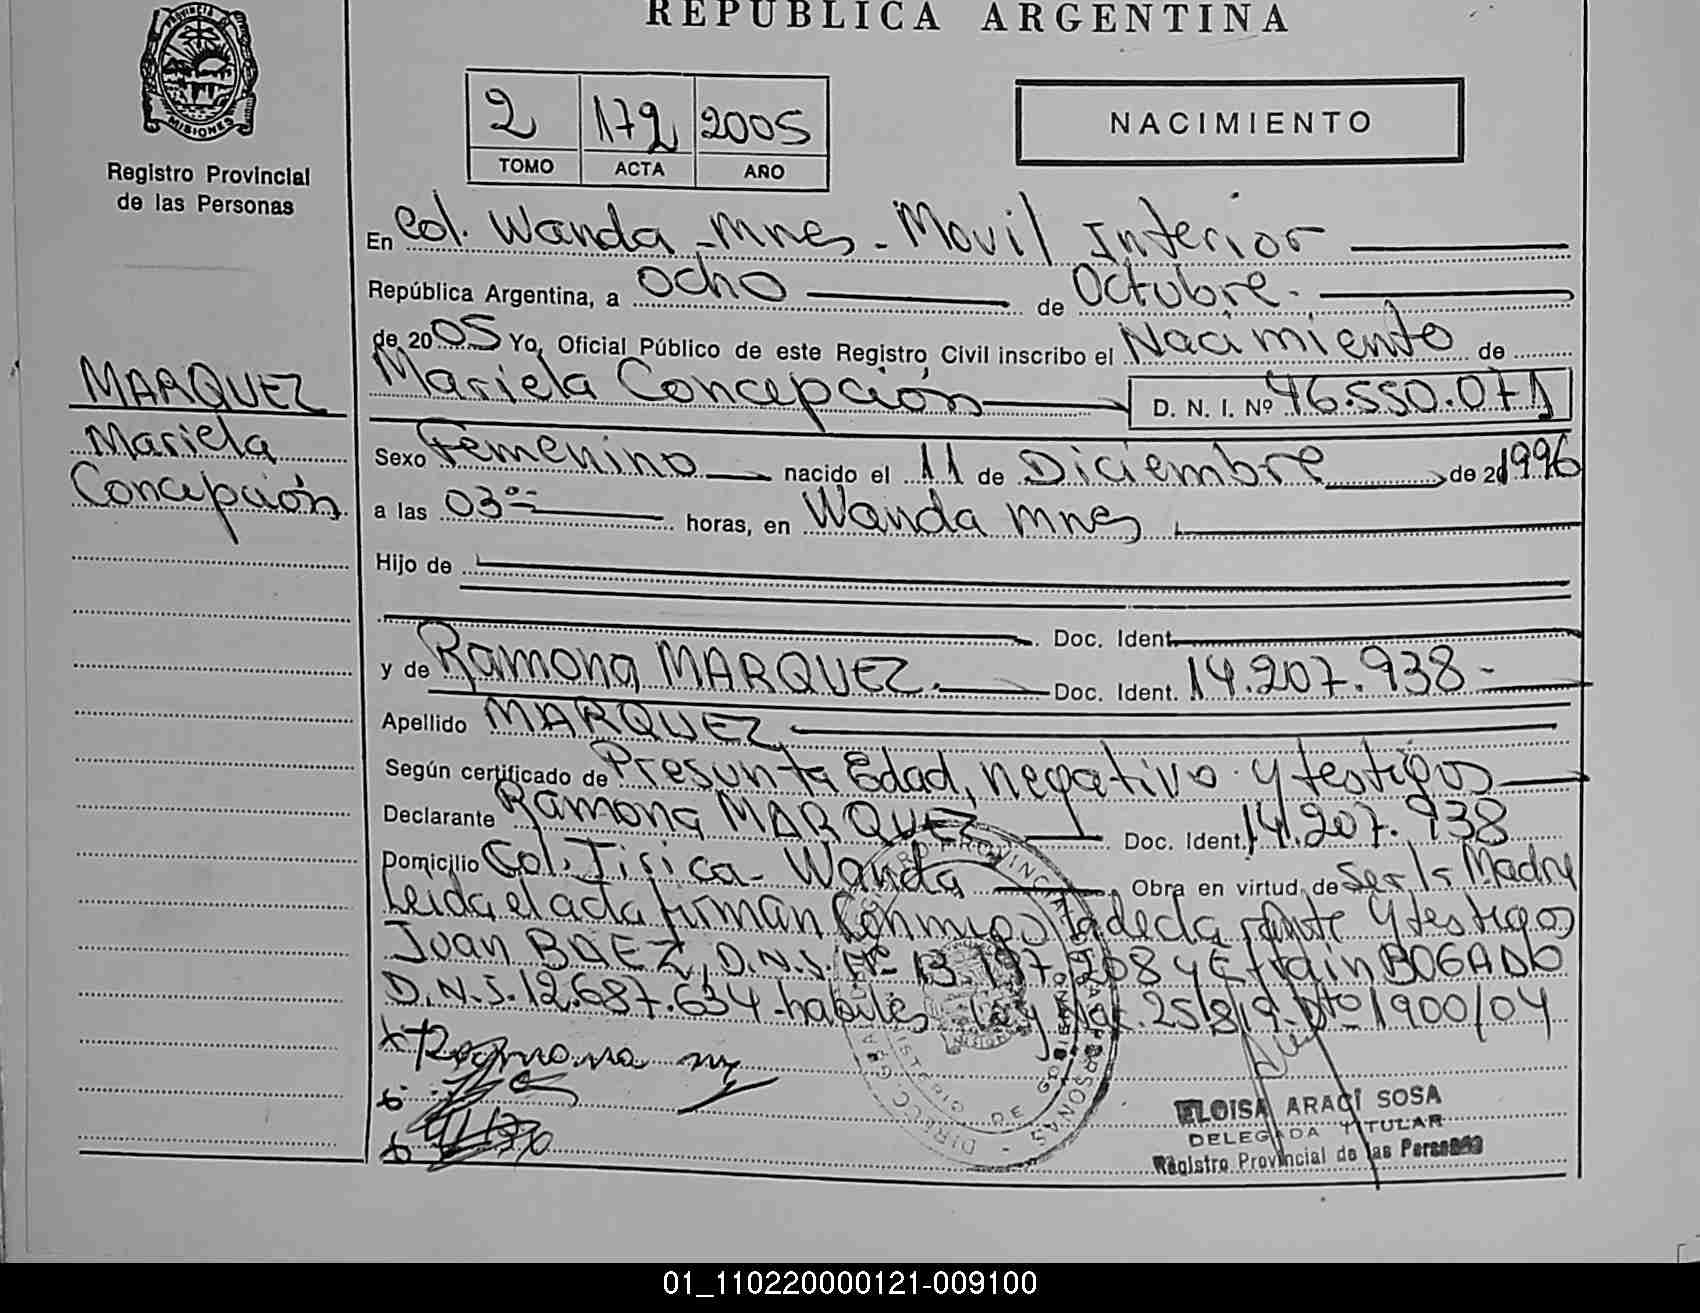 REPUBLICA ARGENTINA
PROVINCIA
MISIONES
Registro Provincial
de las Personas
2 172 2005
TOMO ACTA AÑO
NACIMIENTO
En Col. Wanda - Mnes - Movil Interior
República Argentina, a ocho de Octubre.
de 2005 Yo, Oficial Público de este Registro Civil inscribo el Nacimiento de
Mariela Concepción D. N. I. Nº 46.550.071
MARQUEZ
Mariela
Concepción
Sexo Femenino nacido el 11 de Diciembre de 1996
a las 03 horas, en Wanda Mnes
Hijo de
Doc. Ident.
y de Ramona MARQUEZ. Doc. Ident. 14.207.938-
Apellido MARQUEZ
Según certificado de Presunta Edad, negativo y testigos
Declarante Ramona MARQUEZ Doc. Ident. 14.207.938
Domicilio Col. Tirica - Wanda Obra en virtud de Ser la Madre
Leida el acta firman Conmigo la declarante y testigos
Juan BAEZ, D.N.I. Nº 13.197.268 y Efrain BOGADO
D.N.I. 12.687.634 - habiles Ley Nac. 25819 Dto 1900/04
ELOISA ARACÍ SOSA
DELEGADA TITULAR
Registro Provincial de las Personas
01_110220000121-009100